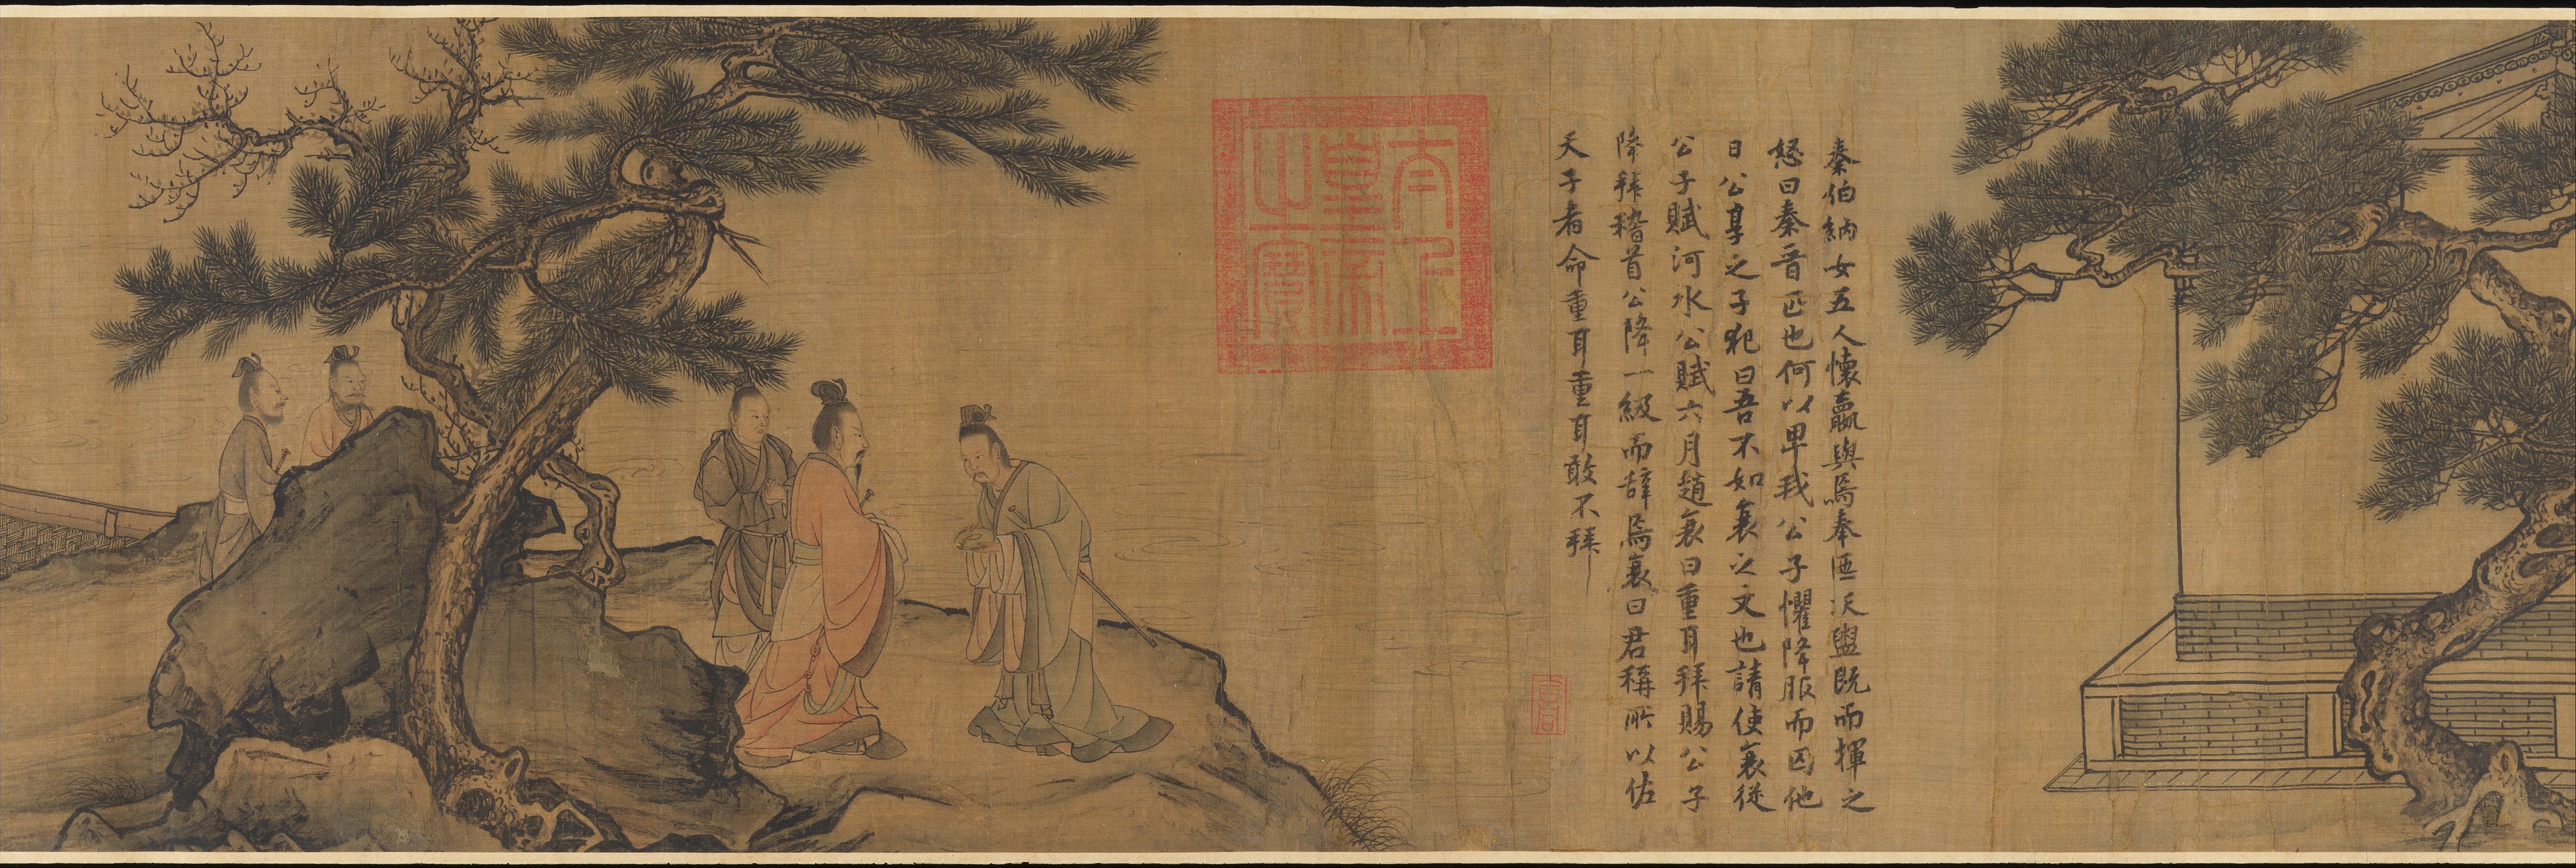 秦伯納女五人懷嬴與焉奉匜沃盥既而揮之
怒曰秦晉匹也何以卑我公子懼降服而囚他
日公享之子犯曰吾不如衰之文也請使衰從
公子賦河水公賦六月趙衰曰重耳拜賜公子
降拜稽首公降一級而辞焉衰曰君稱所以佐
天子者命重耳重耳敢不拜
太上
皇帝
之寶